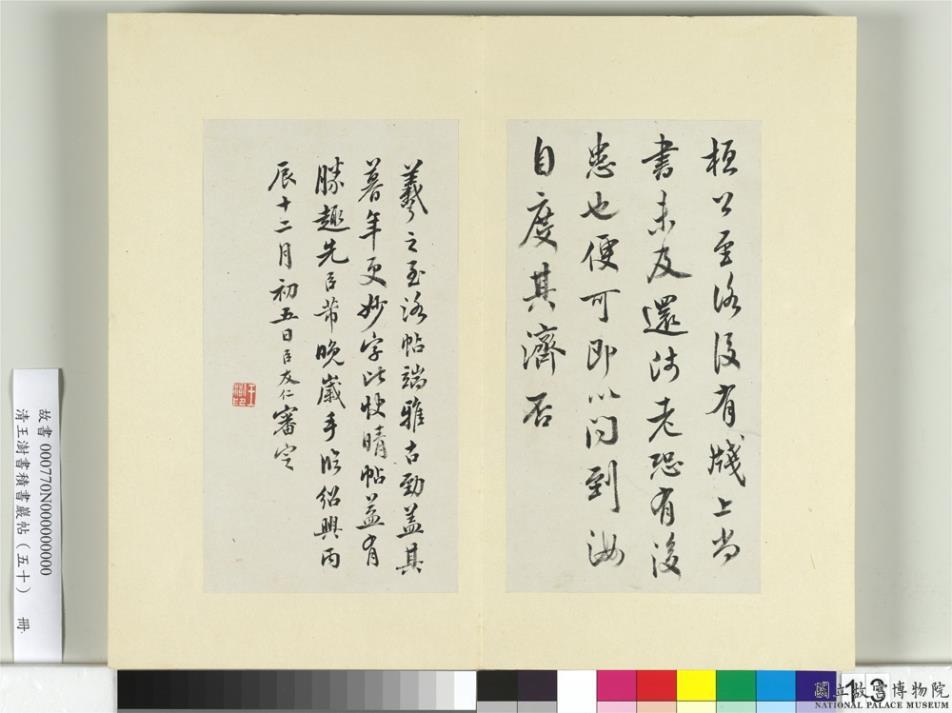 桓公至洛後有牋上当
書未及還汝老恐有後
患也便可即以問到汝
自度其濟否
羲之至洛帖端雅古勁蓋其
暮年更妙字比快晴帖益有
勝趣先臣芾晚歲手臨紹興丙
辰十二月初五日臣友仁審定
故書 000770N000000000
清王澍書積書巖帖(五十) 冊
13
國立故宮博物院
NATIONAL PALACE MUSEUM